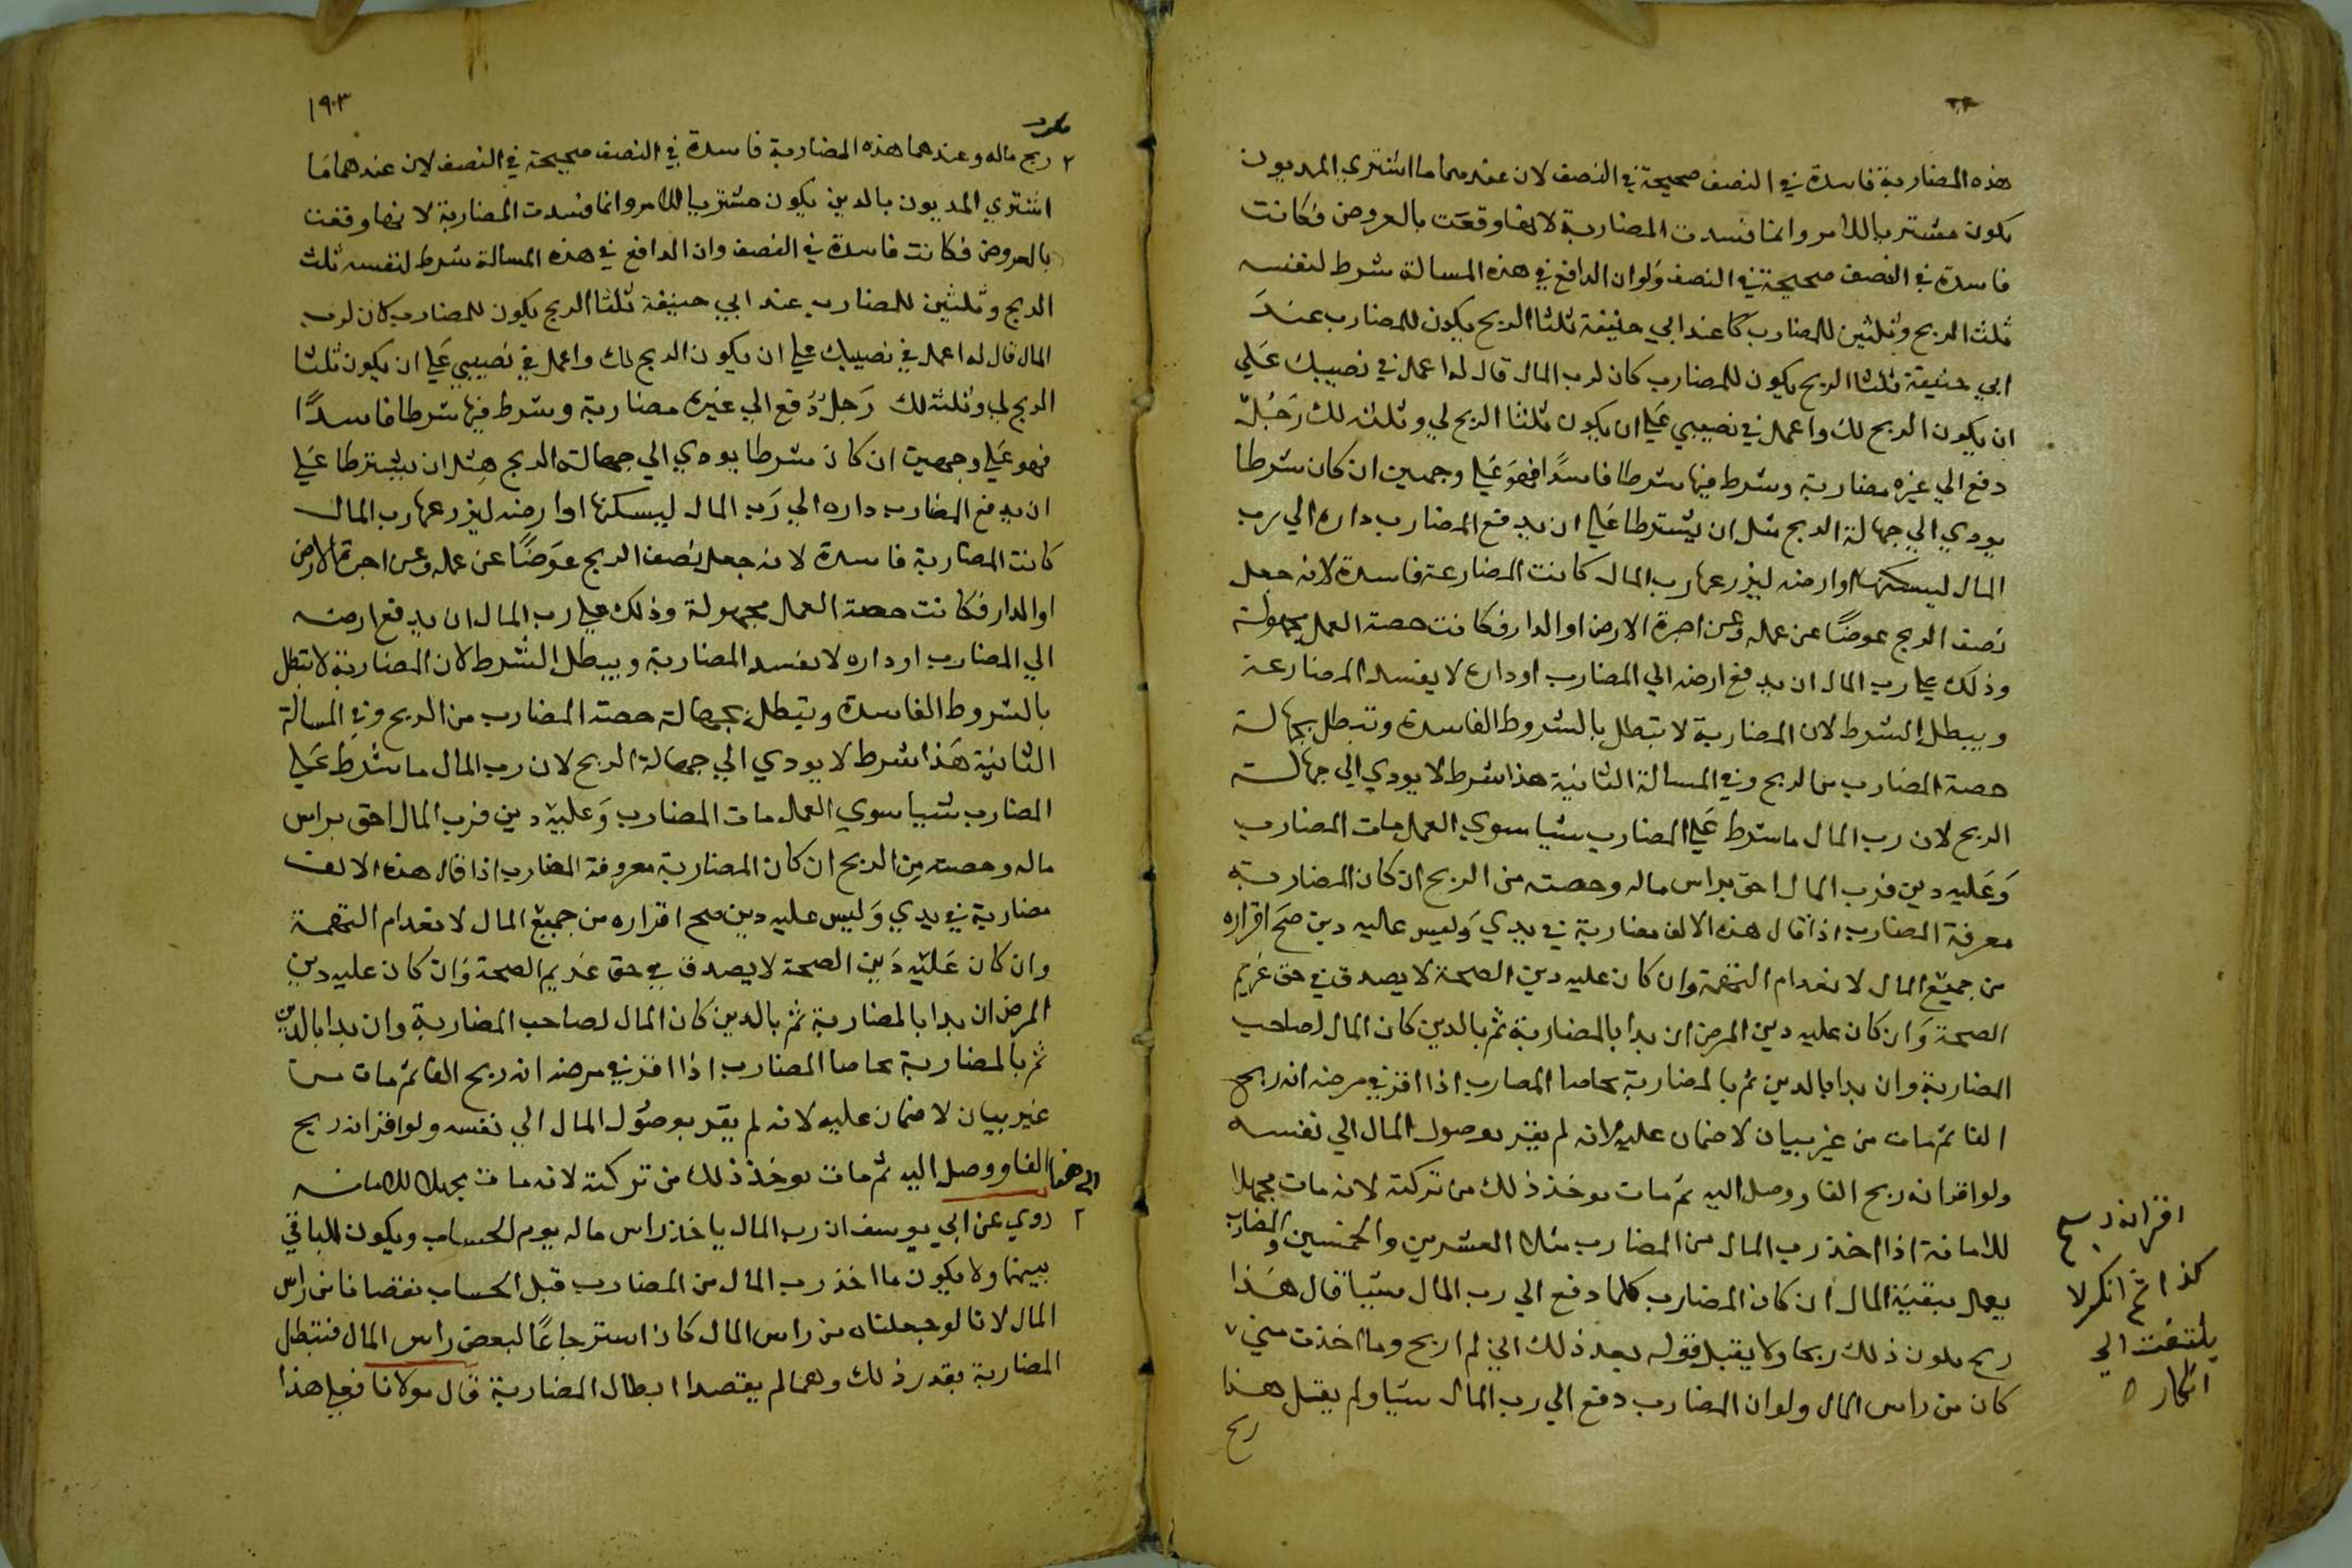 هذه المضاربة فاسدة في النصف صحيحة في النصف لان عندهما ما اشتري المديون
يكون مشتريا للامر وانما فسدت المضاربة لانها وقعت بالعروض فكانت
فاسدة في النصف صحيحة في النصف ولو ان الدافع في هذه المسالة شرط لنفسه
ثلث الربح وثلثين للمضارب كا عند ابي حنيفة ثلثا الربح يكون للمضارب عند
ابي حنيفة ثلثا الربح يكون للمضارب كان لرب المال قال له اعمل في نصيبك علي
ان يكون الربح لك واعمل في نصيبي علي ان يكون ثلثا الربح لي وثلثه لك رجل
دفع الي غيره مضاربة وشرط فيها شرطا فاسدا فهو علي وجهين ان كان شرطا
يودي الي جهالة الربح مثل ان يشترطا علي ان يدفع المضارب داره الي رب
المال ليسكنها او ارضه ليزرعها رب المال كانت المضارعة فاسدة لانه جعل
نصف الربح عوضا عن عمله وعن اجرة الارض او الدار فكانت حصة العمل مجهولة
وذلك علي رب المال ان يدفع ارضه الي المضارب او داره لا يفسد المضارعة
ويبطل الشرط لان المضاربة لا تبطل بالشروط الفاسدة وتبطل بجهالة
حصة المضارب من الربح وفي المسالة الثانية هذا شرط لا يودي الي جهالة
الربح لان رب المال ما شرط علي المضارب شيا سوي العمل مات المضارب
وعليه دين فرب المال احق براس ماله وحصته من الربح ان كان المضاربة
معرفة المضارب اذا قال هذه الالف مضاربة في يدي وليس عليه دين صح اقراره
من جميع المال لانعدام التهمة وان كان عليه دين الصحة لا يصدق في حق غريم
الصحة وان كان عليه دين المرض ان بدا بالمضاربة ثم بالدين كان المال لصاحب
المضاربة وان بدا بالدين ثم بالمضاربة تحاصا المضارب اذا اقر في مرضه انه ربح
الفا ثم مات من غير بيان لا ضمان عليه لانه لم يقر بوصول المال الي نفسه
ولو اقر انه ربح الفا ووصل اليه ثم مات يوخذ ذلك من تركته لانه مات مجهلا
للامانة اذا اخذ رب المال من المضارب مثلا العشرين والخمسين والمضارب
يعمل ببقية المال ان كان المضارب كلما دفع الي رب المال شيا قال هذا
ربح يكون ذلك ربحا ولا يقبل قوله بعد ذلك اني لم اربح وما اخذت مني
كان من راس المال ولو ان المضارب دفع الي رب المال شيا ولم يقل هذا
ربح
اقر انه ربح
كذا ثم انكر لا
يلتفت الي
انكاره
١٩٠٣
ربح ماله وعندهما هذه المضاربة فاسدة في النصف صحيحة في النصف لان عندهما ما
اشتري المديون بالدين يكون مشتريا للامر وانما فسدت المضاربة لانها وقعت
بالعروض فكانت فاسدة في النصف وان الدافع في هذه المسالة شرط لنفسه ثلث
الربح وثلثين للمضارب عند ابي حنيفة ثلثا الربح يكون للمضارب كان لرب
المال قال له اعمل في نصيبك علي ان يكون الربح لك واعمل في نصيبي علي ان يكون ثلثا
الربح لي وثلثه لك رجل دفع الي غيره مضاربة وشرط فيها شرطا فاسدا
فهو علي وجهين ان كان شرطا يودي الي جهالة الربح مثل ان يشترطا علي
ان يدفع المضارب داره الي رب المال ليسكنها او ارضه ليزرعها رب المال
كانت المضاربة فاسدة لانه جعل نصف الربح عوضا عن عمله وعن اجرة الارض
او الدار فكانت حصة العمل مجهولة وذلك علي رب المال ان يدفع ارضه
الي المضارب او داره لا يفسد المضاربة ويبطل الشرط لان المضاربة لا تبطل
بالشروط الفاسدة وتبطل بجهالة حصة المضارب من الربح وفي المسالة
الثانية هذا شرط لا يودي الي جهالة الربح لان رب المال ما شرط علي
المضارب شيا سوي العمل مات المضارب وعليه دين فرب المال احق براس
ماله وحصته من الربح ان كان المضاربة معروفة المضارب اذا قال هذه الالف
مضاربة في يدي وليس عليه دين صح اقراره من جميع المال لانعدام التهمة
وان كان عليه دين الصحة لا يصدق في حق غريم الصحة وان كان عليه دين
المرض ان بدا بالمضاربة ثم بالدين كان المال لصاحب المضاربة وان بدا بالدين
ثم بالمضاربة تحاصا المضارب اذا اقر في مرضه انه ربح الفا ثم مات من
غير بيان لا ضمان عليه لانه لم يقر بوصول المال الي نفسه ولو اقر انه ربح
الفا ووصل اليه ثم مات يوخذ ذلك من تركته لانه مات مجهلا للامانة
الي هنا
روي عن ابي يوسف ان رب المال ياخذ راس ماله يوم الحساب ويكون الباقي
بينهما ولا يكون ما اخذ رب المال من المضارب قبل الحساب نقصانا من راس
المال لانا لو جعلناه من راس المال كان استرجاعا لبعض راس المال فتبطل
المضاربة بقدر ذلك وهما لم يقصدا ابطال المضاربة قال مولانا فعلي هذا